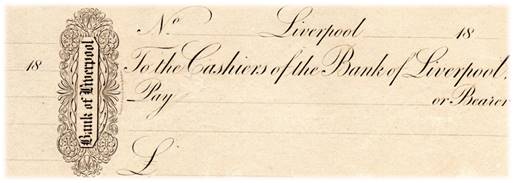 No Liverpool 18
18
Bank of Liverpool
To the Cashiers of the Bank of Liverpool,
Pay or Bearer
£